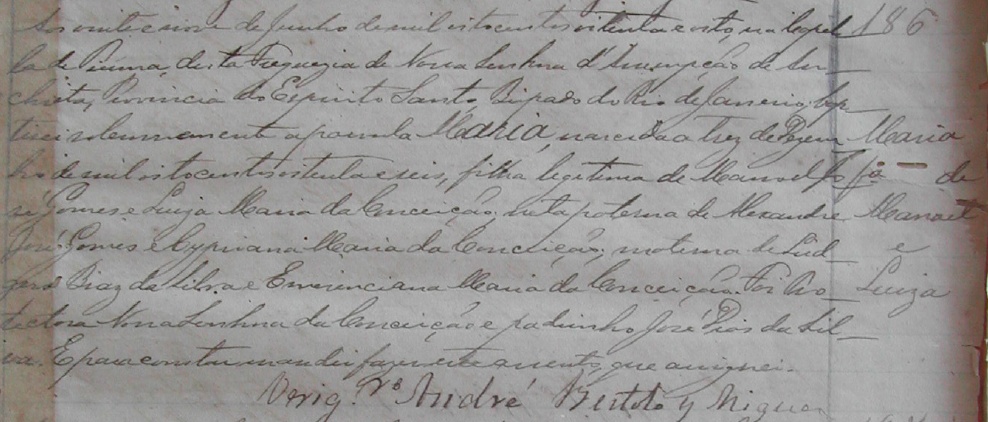 Aos vinte e nove de Junho de mil oitocentos oitenta e oito, na Capel 186
la de Piuma, desta Freguezia de Nossa Senhora d'Assumpção de An-
chieta, Provincia do Espirito Santo, Bispado do Rio de Janeiro, bap
tizei solemnemente a parvula Maria, nascida a trez de Maria
ho de mil oitocentos oitenta e seis, filha legitima de Manoel Jo fª de
sé Gomes e Luiza Maria da Conceição; neta paterna de Alexandre Manoel
José Gomes e Cypriana Maria da Conceição; materna de Lud- e
gero Braz da Silva e Emerenciana Maria da Conceição. Foi Pro- Luiza
tectora Nossa Senhora da Conceição e padrinho José Dias da Sil-
va. E para constar mandei fazer este assento, que assignei.
Verig.ro André